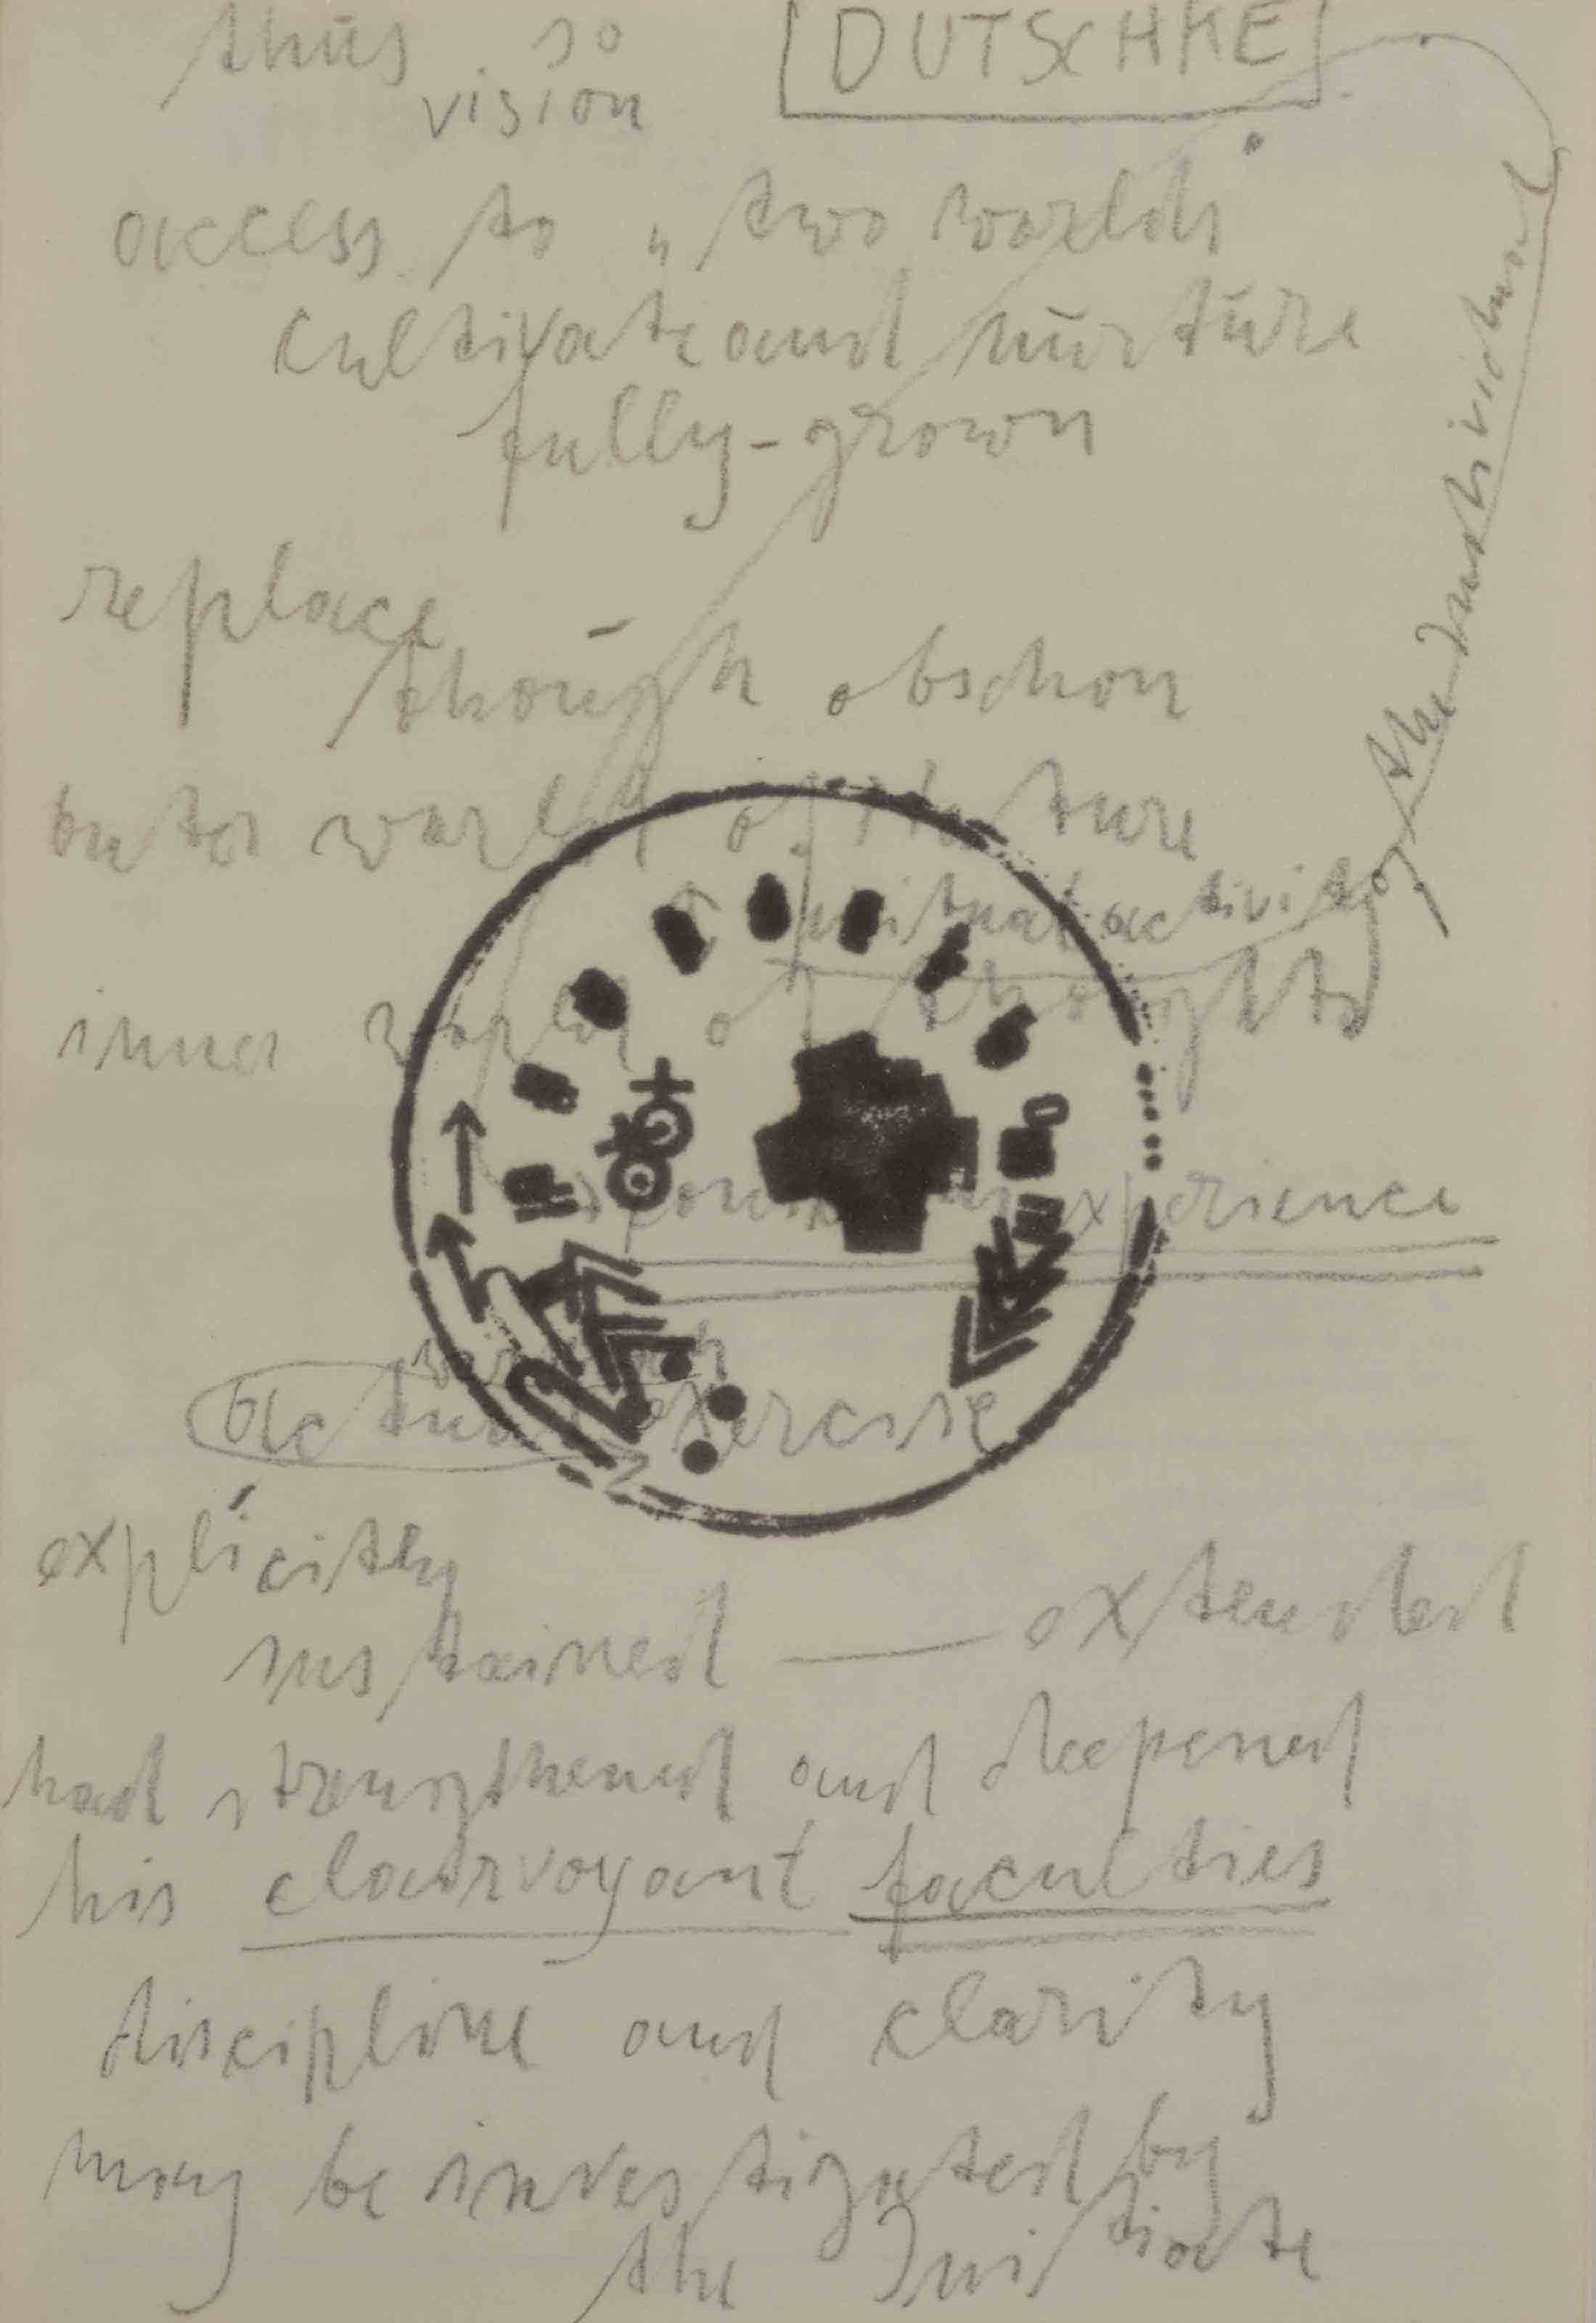 thus so
vision
DUTSCHKE
access to „two worlds
cultivate and nurture
fully-grown
replace
though obschon
outer world of Nature
the individual
spiritual activity of
inner world of thought
experience
actual exercise
explicitly
sustained — extended
had strengthened and deepened
his clairvoyant faculties
discipline and clarity
may be investigated by
the Initiate